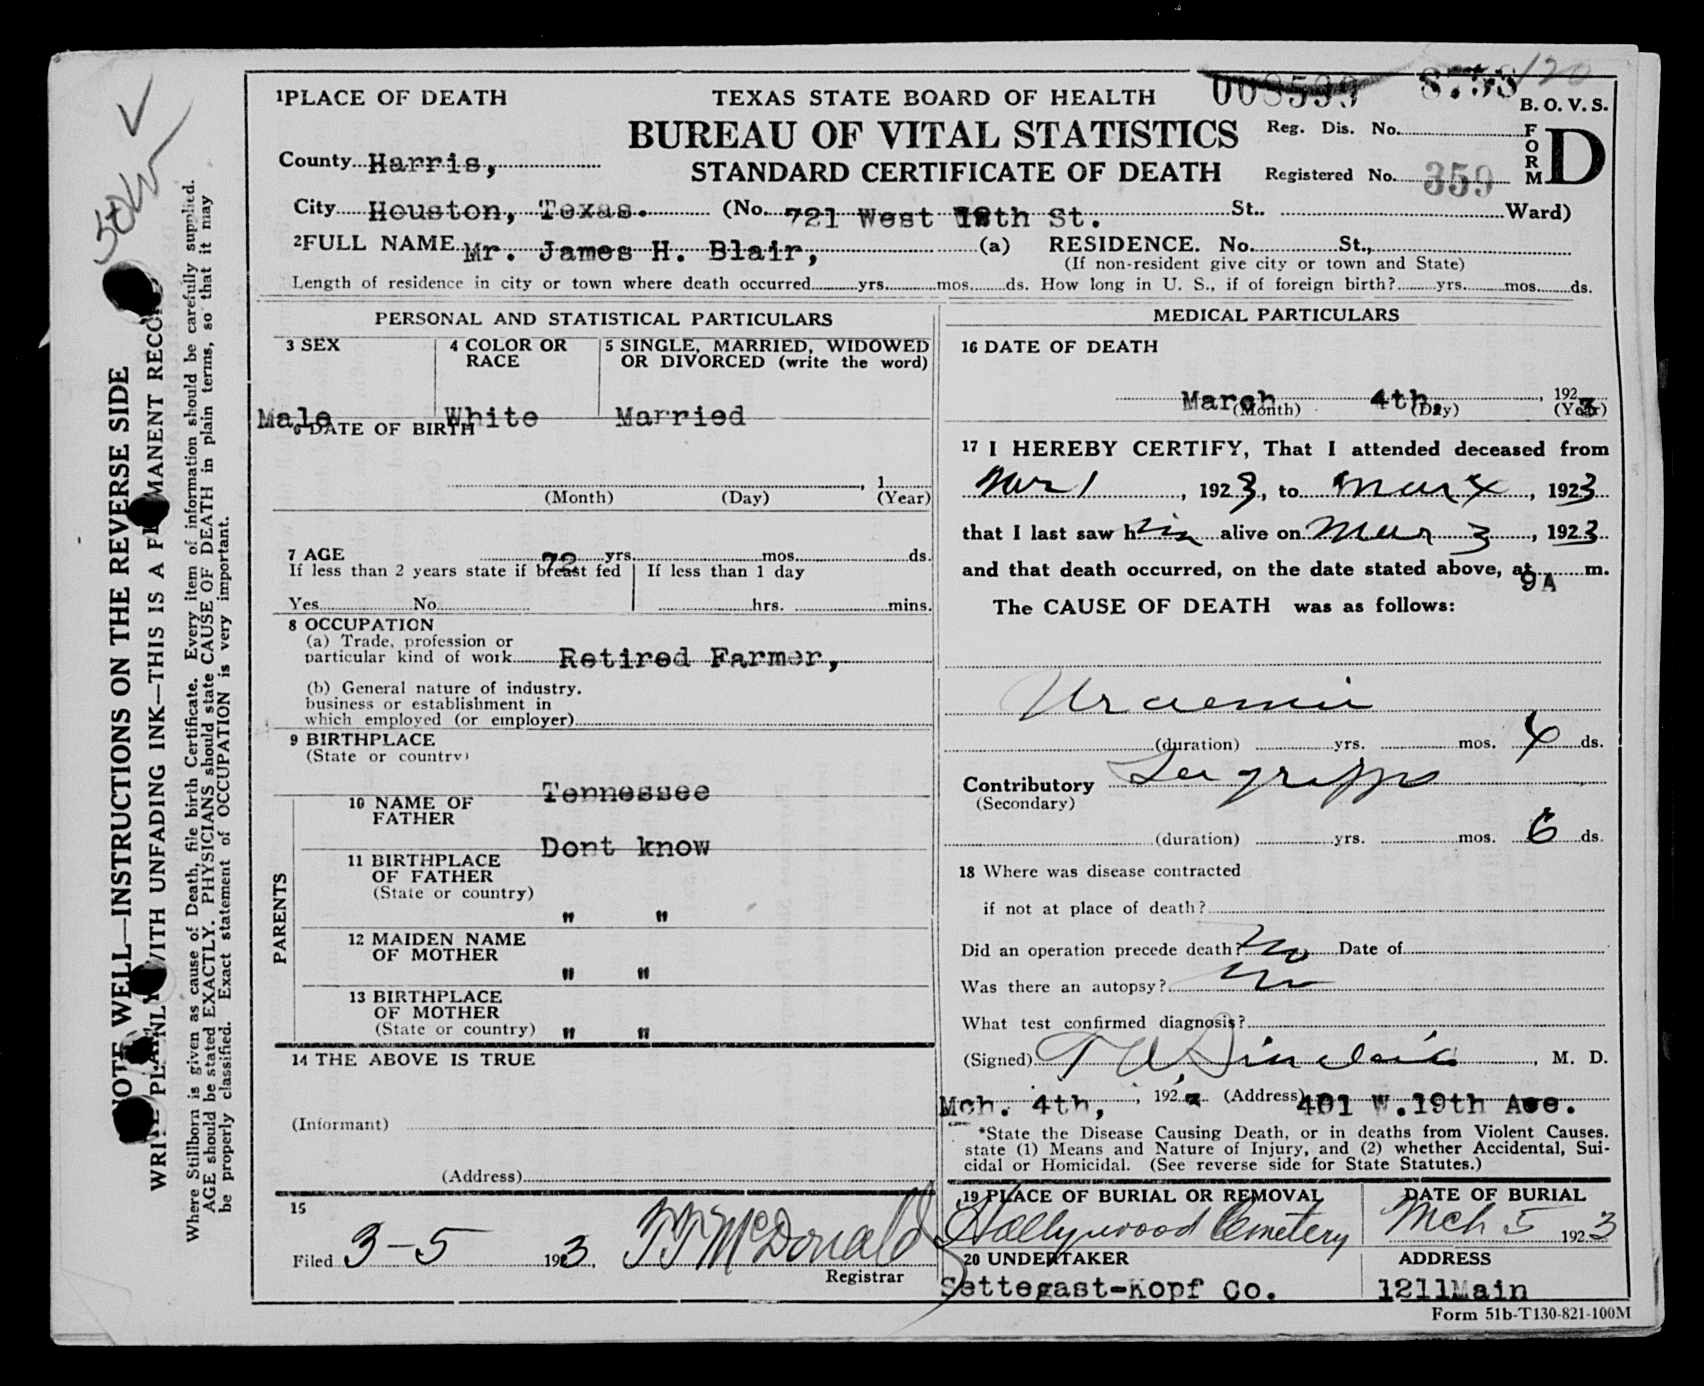 1 PLACE OF DEATH
TEXAS STATE BOARD OF HEALTH
B. O. V. S.
BUREAU OF VITAL STATISTICS
Reg. Dis. No.
FORM D
County Harris,
STANDARD CERTIFICATE OF DEATH
Registered No. 359
City Houston, Texas. (No. 721 West St. St.. Ward)
2 FULL NAME Mr. James H. Blair, (a) RESIDENCE. No. St.,
(If non-resident give city or town and State)
Length of residence in city or town where death occurred yrs. mos. ds. How long in U. S., if of foreign birth? yrs. mos. ds.
PERSONAL AND STATISTICAL PARTICULARS
3 SEX
4 COLOR OR RACE
5 SINGLE, MARRIED, WIDOWED
OR DIVORCED (write the word)
Male White Married
6 DATE OF BIRTH
, 1
(Month) (Day) (Year)
7 AGE 72 yrs. mos. ds.
If less than 2 years state if breast fed If less than 1 day
Yes No hrs. mins.
8 OCCUPATION
(a) Trade, profession or
particular kind of work Retired Farmer,
(b) General nature of industry.
business or establishment in
which employed (or employer)
9 BIRTHPLACE
(State or country)
Tennessee
PARENTS
10 NAME OF
FATHER
Dont know
11 BIRTHPLACE
OF FATHER
(State or country)
" "
12 MAIDEN NAME
OF MOTHER
" "
13 BIRTHPLACE
OF MOTHER
(State or country) " "
14 THE ABOVE IS TRUE
(Informant)
(Address)
15
Filed 3-5 1923. McDonald
Registrar
MEDICAL PARTICULARS
16 DATE OF DEATH
March 4th, , 1923
(Month) (Day) (Year)
17 I HEREBY CERTIFY, That I attended deceased from
Mar 1 , 1923, to Mar 4 , 1923
that I last saw him alive on Mar 3 , 1923
and that death occurred, on the date stated above, at 9A m.
The CAUSE OF DEATH was as follows:
Uraemia
(duration) yrs. mos. 4 ds.
Contributory La grippe
(Secondary)
(duration) yrs. mos. 6 ds.
18 Where was disease contracted
if not at place of death?
Did an operation precede death? no Date of
Was there an autopsy? no
What test confirmed diagnosis?
(Signed) T W Sinclair , M. D.
Mch. 4th, , 192 (Address) 401 W.19th Ave.
*State the Disease Causing Death, or in deaths from Violent Causes.
state (1) Means and Nature of Injury, and (2) whether Accidental, Sui-
cidal or Homicidal. (See reverse side for State Statutes.)
19 PLACE OF BURIAL OR REMOVAL DATE OF BURIAL
Hollywood Cemetery Mch 5 1923
20 UNDERTAKER ADDRESS
Settegast-Kopf Co. 1211Main
Form 51b-T130-821-100M
NOTE WELL—INSTRUCTIONS ON THE REVERSE SIDE
WRITE PLAINLY WITH UNFADING INK—THIS IS A PERMANENT RECORD
Where Stillborn is given as cause of Death, file birth Certificate. Every item of information should be carefully supplied.
AGE should be stated EXACTLY. PHYSICIANS should state CAUSE OF DEATH in plain terms, so that it may
be properly classified. Exact statement of OCCUPATION is very important.